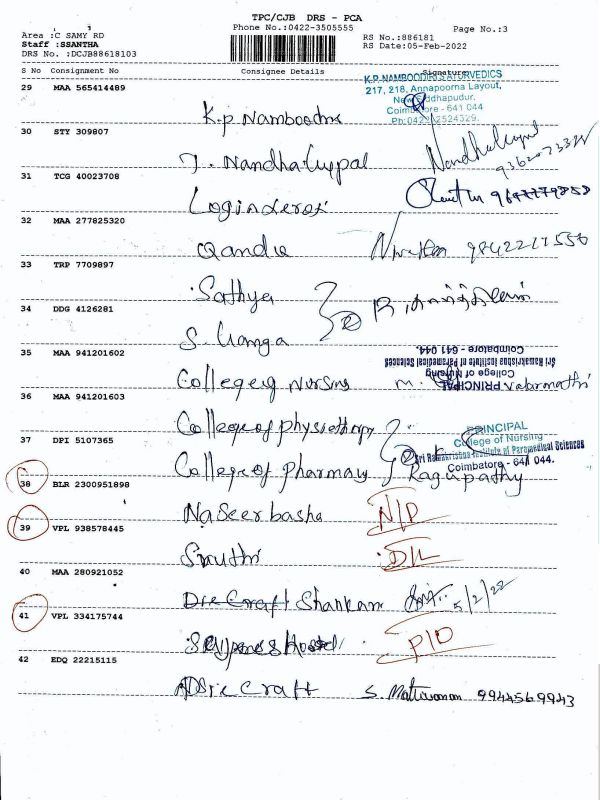 TPC/CJB DRS - PCA
Phone No.:0422-3505555
Page No.:3
Area :C SAMY RD
Staff :SSANTHA
DRS No. :DCJB88618103
RS No.:886181
RS Date:05-Feb-2022
S No Consignment No Consignee Details Signature
K.P. NAMBOODIRI'S AYURVEDICS
217, 218, Annapoorna Layout,
Coimbatore - 641 044
29 MAA 565414489
K.P Namboodris
30 STY 309807
T. Nandha Guypal
31 TCG 40023708
32 MAA 277825320
9842217556
33 TRP 7709897
Sathya
34 DDG 4126281
S. Ganga
35 MAA 941201602
Sri Ramakrishna Institute of Paramedical Sciences
Coimbatore - 641 044.
College of Nursing
PRINCIPAL
College of Nursing M.
36 MAA 941201603
College of physiotherapy
37 DPI 5107365
PRINCIPAL
College of Nursing
Sri Ramakrishna Institute of Paramedical Sciences
Coimbatore - 641 044.
College of Pharmacy Ragupathy
38 BLR 2300951898
Naseer basha N/D
39 VPL 938578445
Sruthi D/L
40 MAA 280921052
Shankam 5/2/22
41 VPL 334175744
P/D
42 EDQ 22215115
Craft S. Mathivanan 9944569943